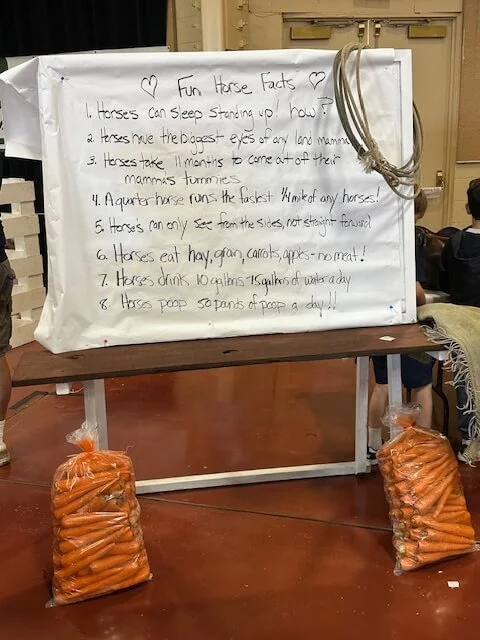 ♡ Fun Horse Facts ♡
1. Horses can sleep standing up! how?
2. Horses have the biggest eyes of any land mamma
3. Horses take 11 months to come out of their
mamma's tummies
4. A quarter horse runs the fastest 1/4 mile of any horses!
5. Horse's can only see from the sides, not straight forward
6. Horses eat hay, grain, carrots, apples - no meat!
7. Horses drink 10 gallons 15 gallons of water a day
8. Horses poop 50 pounds of poop a day!!